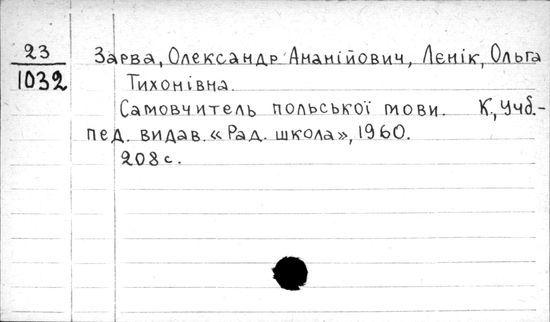 23
1032
Зарва, Олександр Ананійович, Лєнік, Ольга
Тихонівна.
Самовчитель польської мови. К., Учб.-
пед. видав. «Рад. школа», 1960.
208 с.